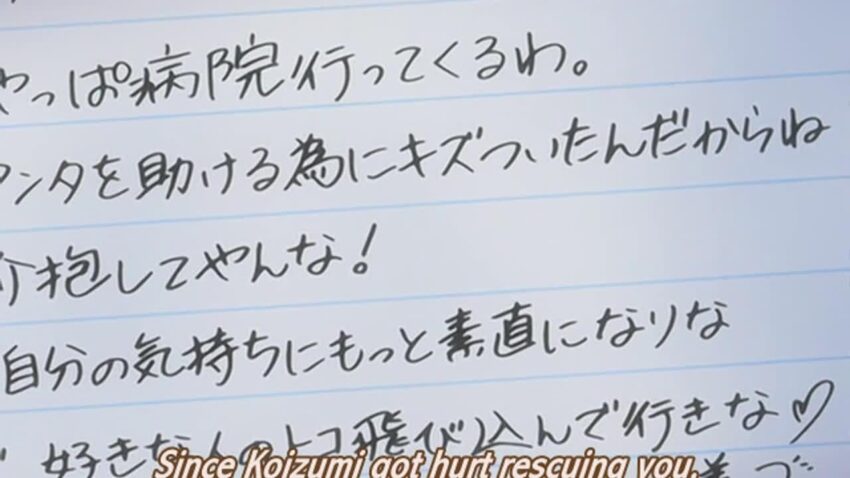 やっぱ病院行ってくるわ。
アンタを助ける為にキズついたんだからね
介抱してやんな!
自分の気持ちにもっと素直になりな
好きな人のトコ飛び込んで行きな♡
Since Koizumi got hurt rescuing you.